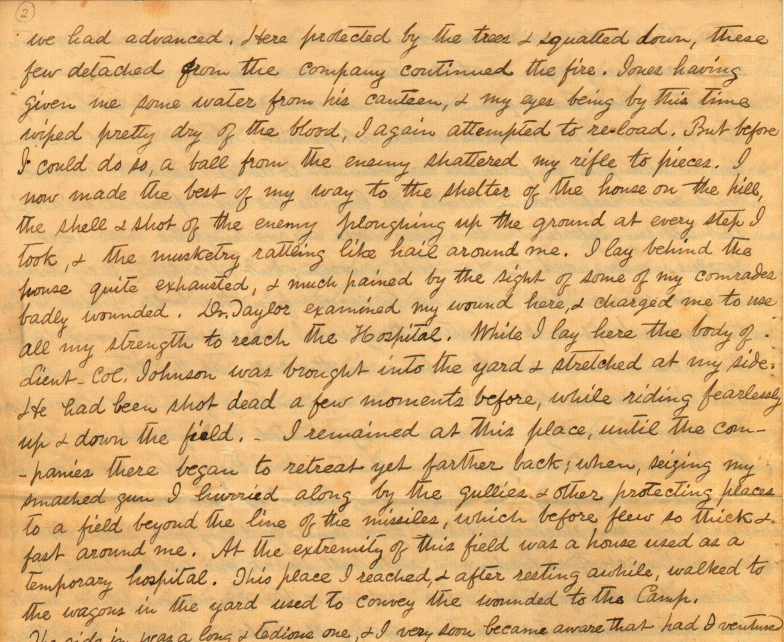 2
we had advanced. Here protected by the trees & squatted down, these
few detached from the company continued the fire. Jones having
given me some water from his canteen, & my eyes being by this time
wiped pretty dry of the blood, I again attempted to re-load. But before
I could do so, a ball from the enemy shattered my rifle to pieces. I
now made the best of my way to the shelter of the house on the hill,
the shell & shot of the enemy ploughing up the ground at every step I
took, & the musketry rattling like hail around me. I lay behind the
house quite exhausted, & much pained by the sight of some of my comrades
badly wounded. Dr. Taylor examined my wound here, & charged me to use
all my strength to reach the Hospital. While I lay here the body of
Lieut-Col. Johnson was brought into the yard & stretched at my side.
He had been shot dead a few moments before, while riding fearlessly
up & down the field. - I remained at this place, until the com-
-panies there began to retreat yet farther back; when, seizing my
smashed gun I hurried along by the gullies & other protecting places
to a field beyond the line of the missiles, which before flew so thick &
fast around me. At the extremity of this field was a house used as a
temporary hospital. This place I reached, & after resting awhile, walked to
the wagons in the yard used to convey the wounded to the Camp.
The ride in was a long & tedious one, & I very soon became aware that had I venture